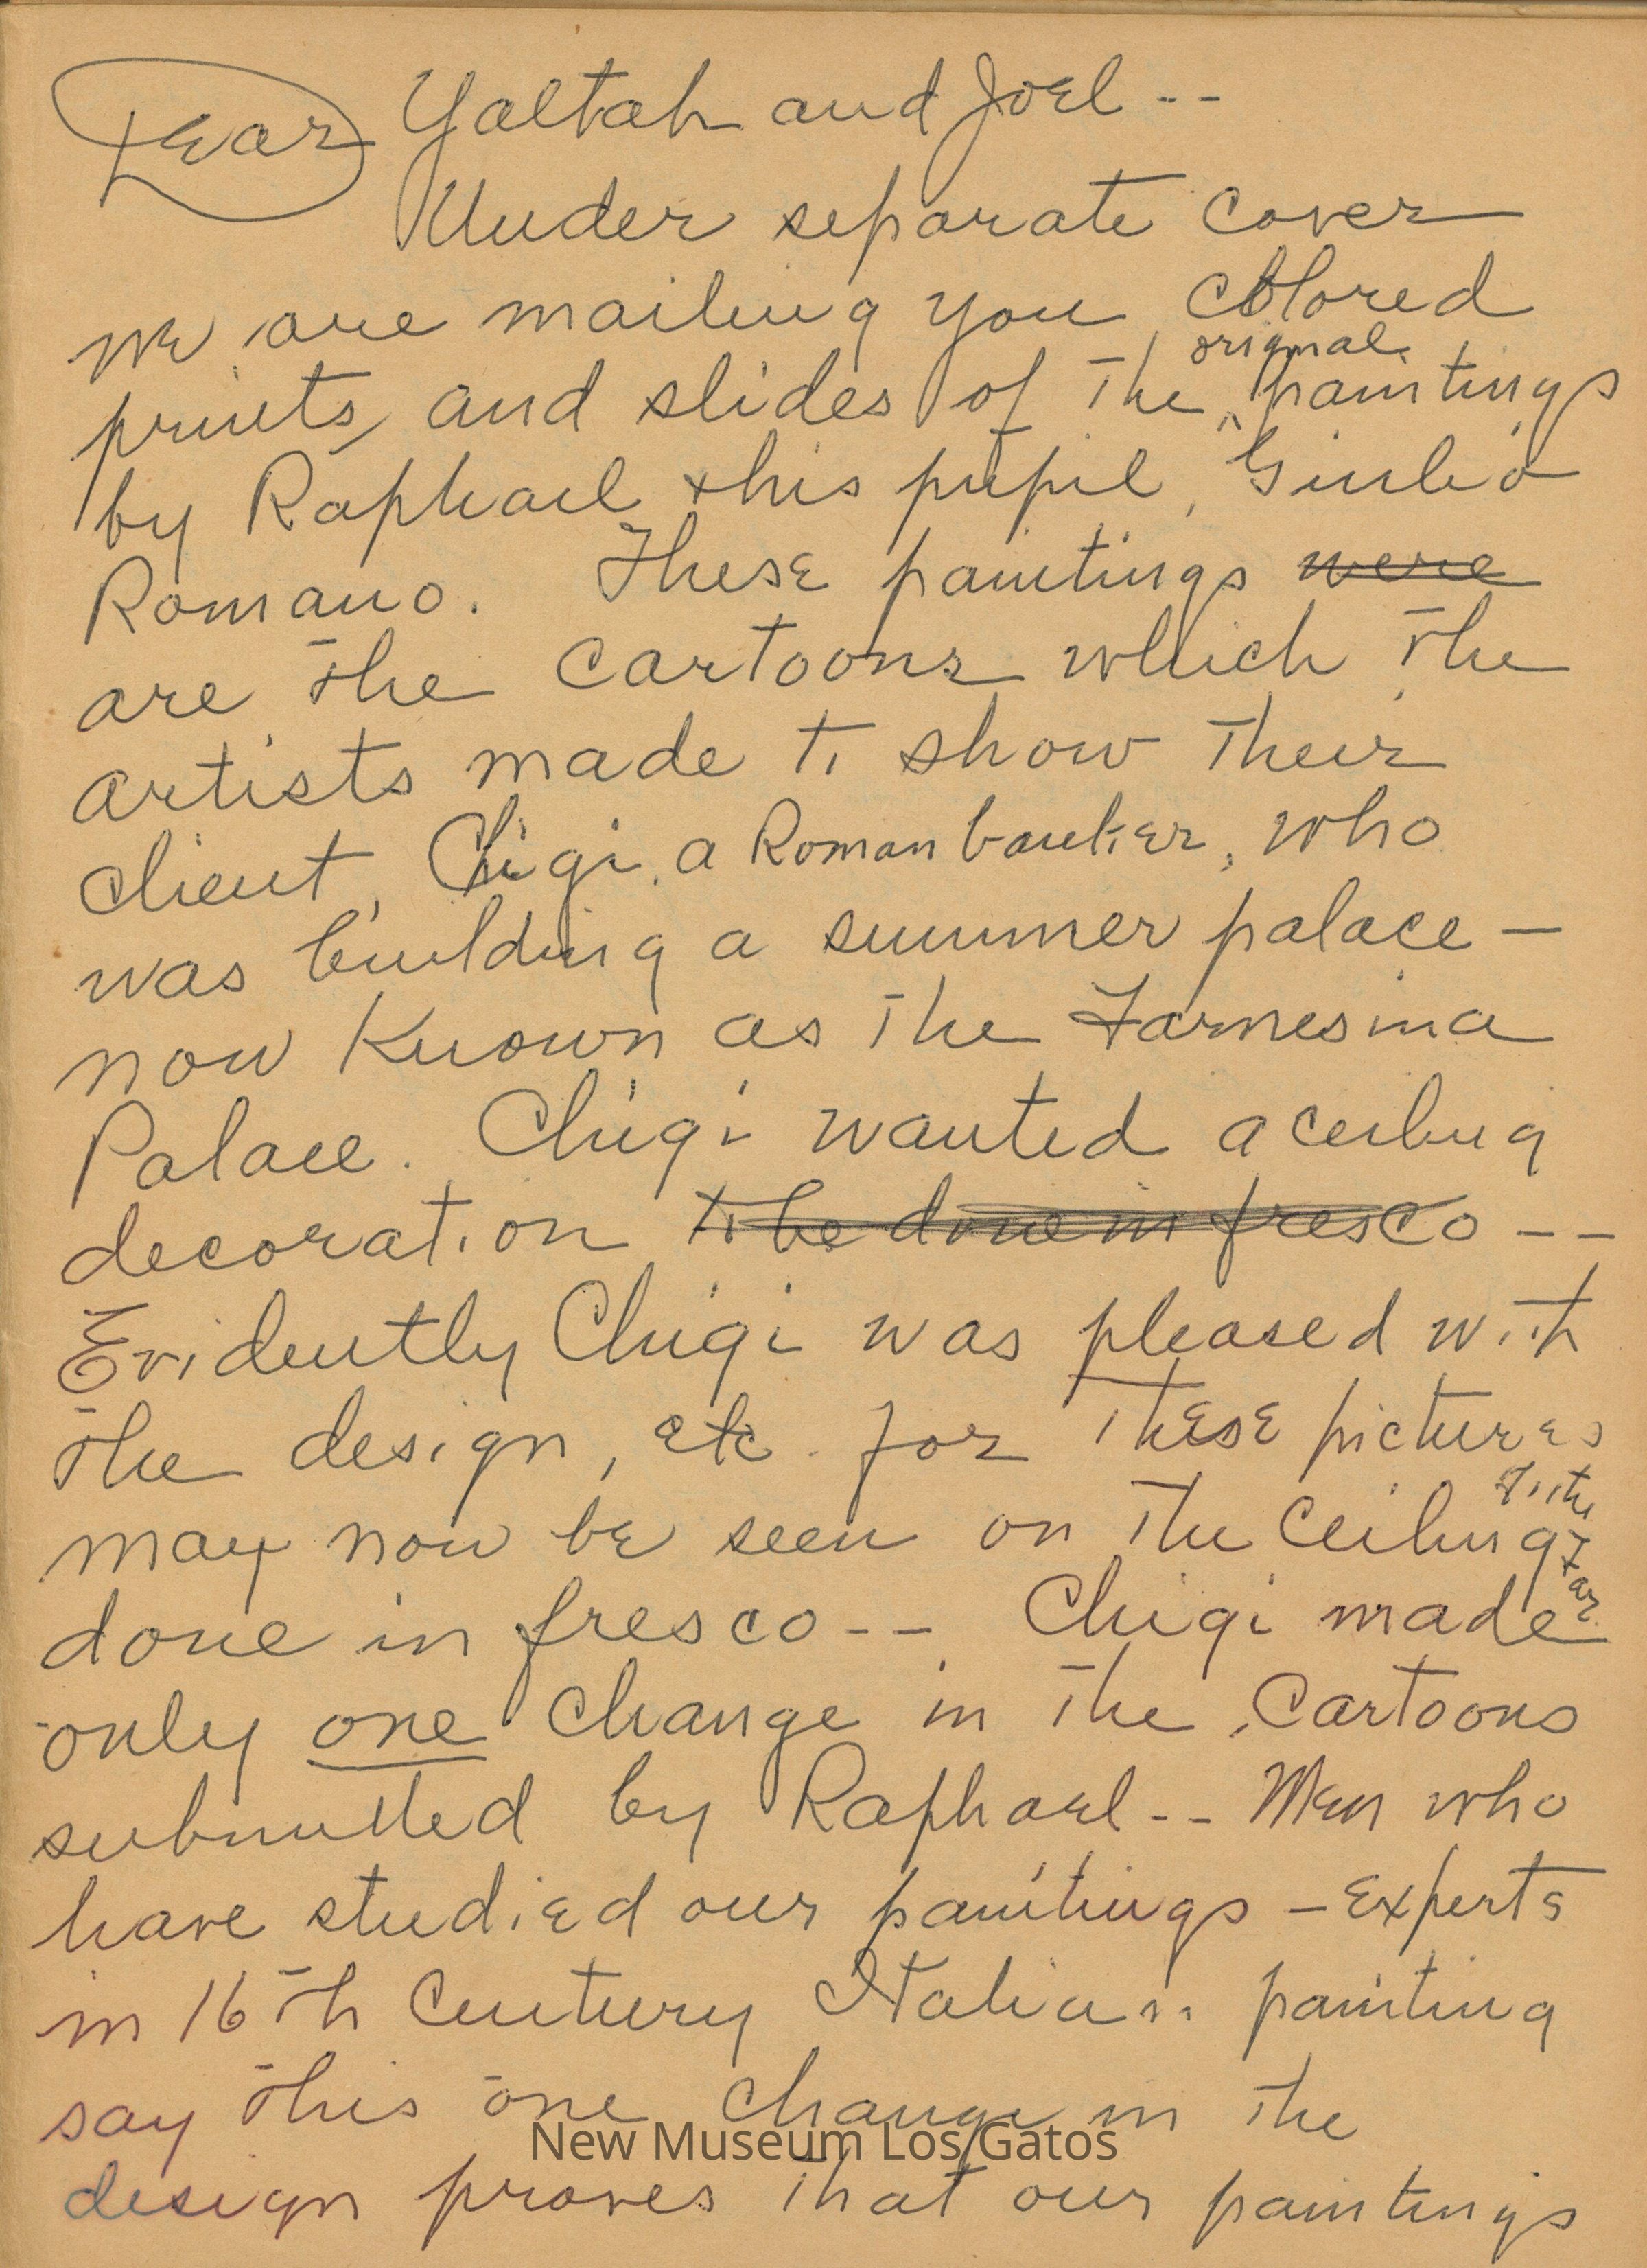 Dear Yaltah and Joel --
Under separate cover
we are mailing you colored
prints and slides of the original paintings
by Raphael & his pupil, Giulio
Romano. These paintings were
are the cartoons which the
artists made to show their
client, Chigi, a Roman banker, who
was building a summer palace —
now known as the Farnesina
Palace. Chigi wanted a ceiling
decoration to be done in fresco --
Evidently Chigi was pleased with
the design, etc. for these pictures
may now be seen on the ceiling
done in fresco -- Chigi made
only one change in the cartoons
submitted by Raphael -- Men who
have studied our paintings — experts
in 16th Century Italian painting
say this one change in the
New Museum Los Gatos
design proves that our paintings